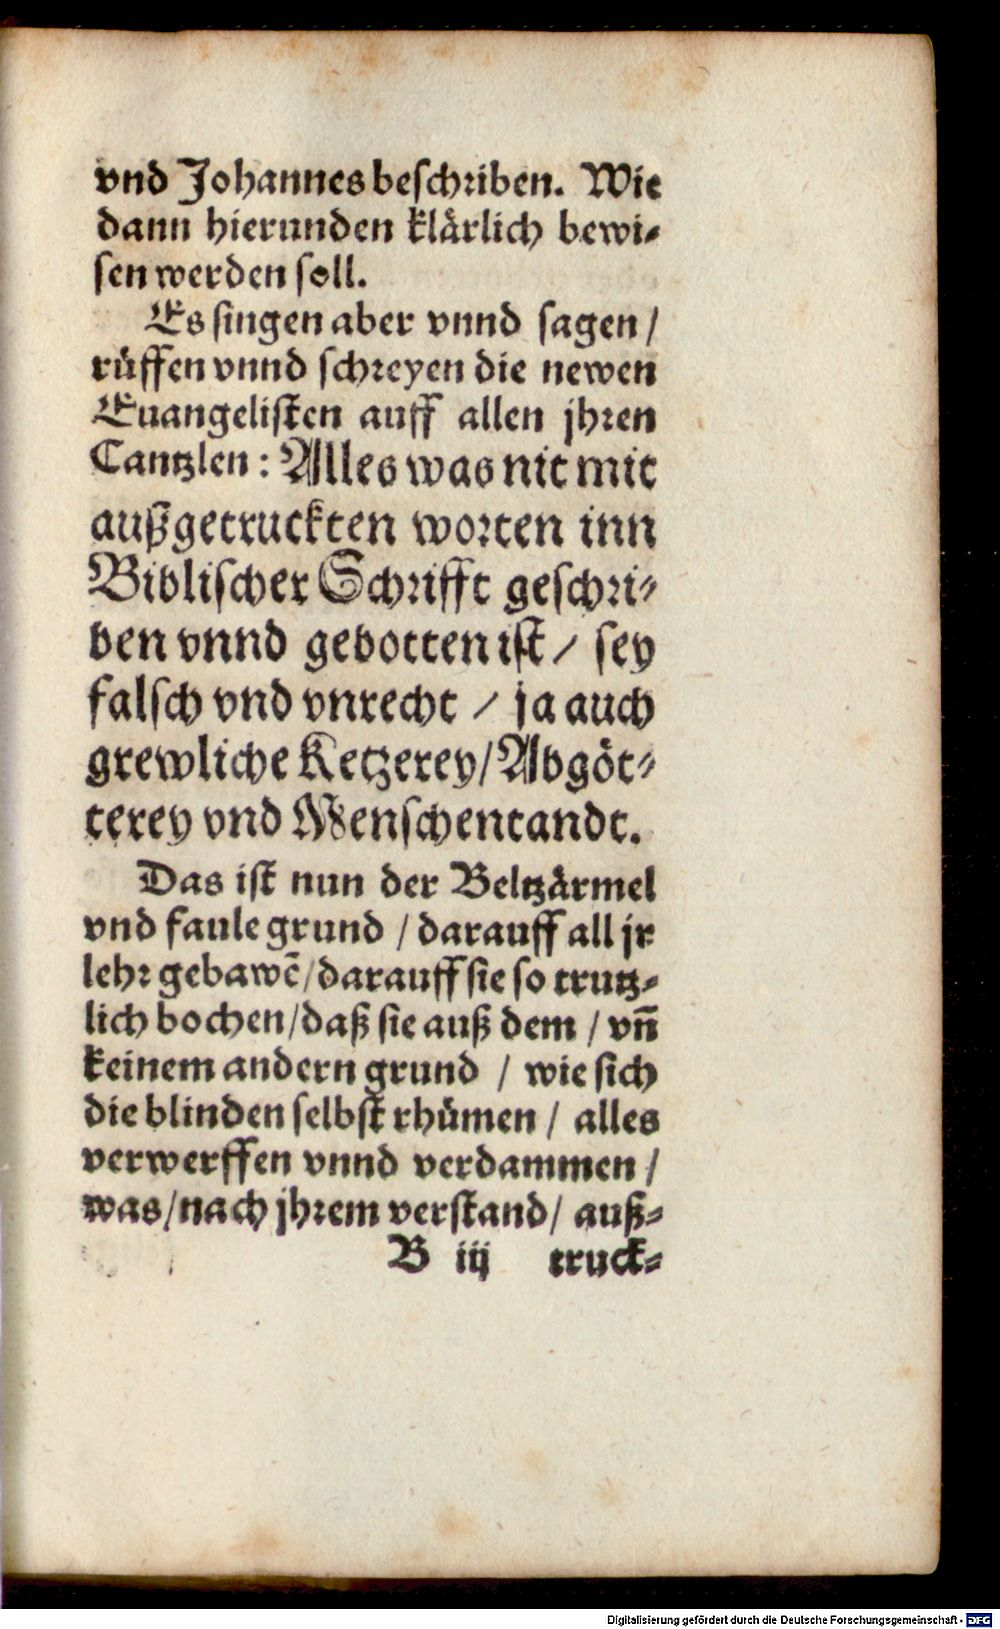 vnd Johannes beschriben. Wie
dann hierunden klärlich bewi-
sen werden soll.
Es singen aber vnnd sagen /
rüffen vnnd schreyen die newen
Euangelisten auff allen jhren
Cantzlen : Alles was nit mit
außgetruckten worten inn
Biblischer Schrifft geschri-
ben vnnd gebotten ist / sey
falsch vnd vnrecht / ja auch
grewliche Ketzerey / Abgöt-
terey vnd Menschentandt.
Das ist nun der Beltzärmel
vnd faule grund / darauff all jr
lehr gebawē / darauff sie so trutz-
lich bochen / daß sie auß dem / vn̄
keinem andern grund / wie sich
die blinden selbst rhümen / alles
verwerffen vnnd verdammen /
was / nach jhrem verstand / auß-
B iij truck-
Digitalisierung gefördert durch die Deutsche Forschungsgemeinschaft - DFG